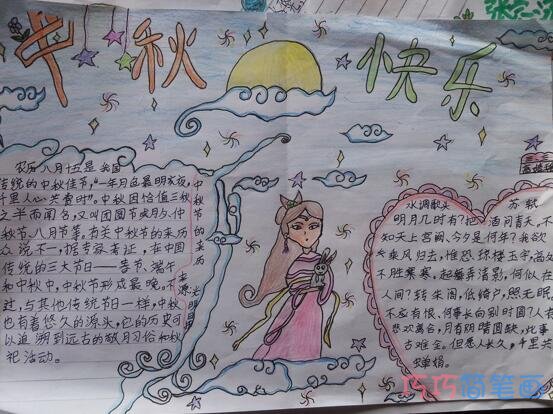 中秋快乐
农历八月十五是我国
传统的中秋佳节,"一年月色最明夜,
千里人心共赏时",中秋因恰值三秋
之半而闻名,又叫团圆节或月夕、仲
秋节、八月节等,有关中秋节的来历
众说不一,据专家考证,在中国
传统的三大节日——春节、端午
和中秋中,中秋节形成最晚。不
过,与其他传统节日一样,中秋
也有着悠久的源头,它的历史可
以追溯到远古的敬月习俗和秋
祀活动。
中秋节的来历
水调歌头 苏轼
明月几时有?把酒问青天。不
知天上宫阙,今夕是何年?我欲
乘风归去,惟恐琼楼玉宇,高处
不胜寒寒,起舞弄清影,何似在
人间?转朱阁,低绮户,照无眠
不应有恨,何事长向别时圆?人有
悲欢离合,月有阴晴圆缺,此事
古难全。但愿人长久,千里共
婵娟。
巧巧简笔画